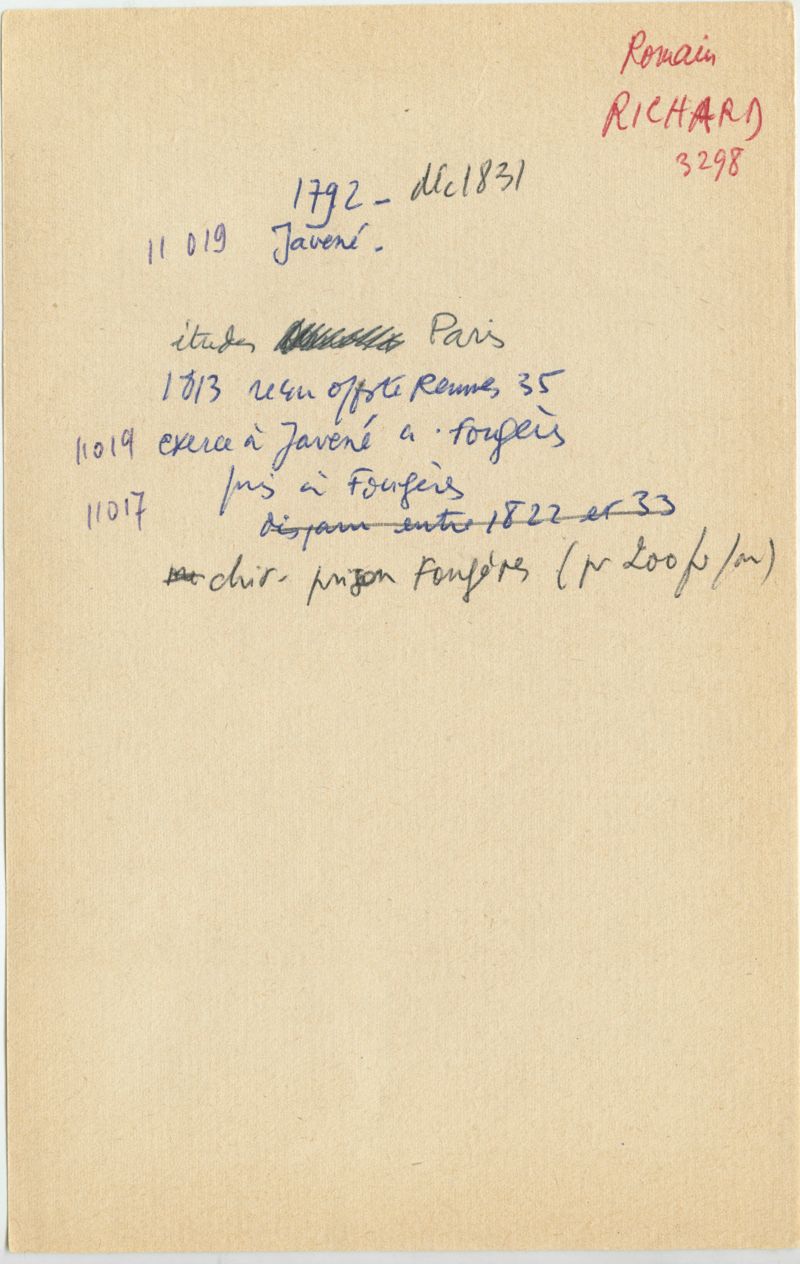 Romain
RICHARD
3298
1792 - déc 1831
11 019 Javené.
études Paris
1813 reçu offste Rennes 35
11019 exerce à Javené a. Fougères
11017 puis à Fougères
disparu entre 1822 et 33
chir. prison Fougères (pr 200 fr/an)